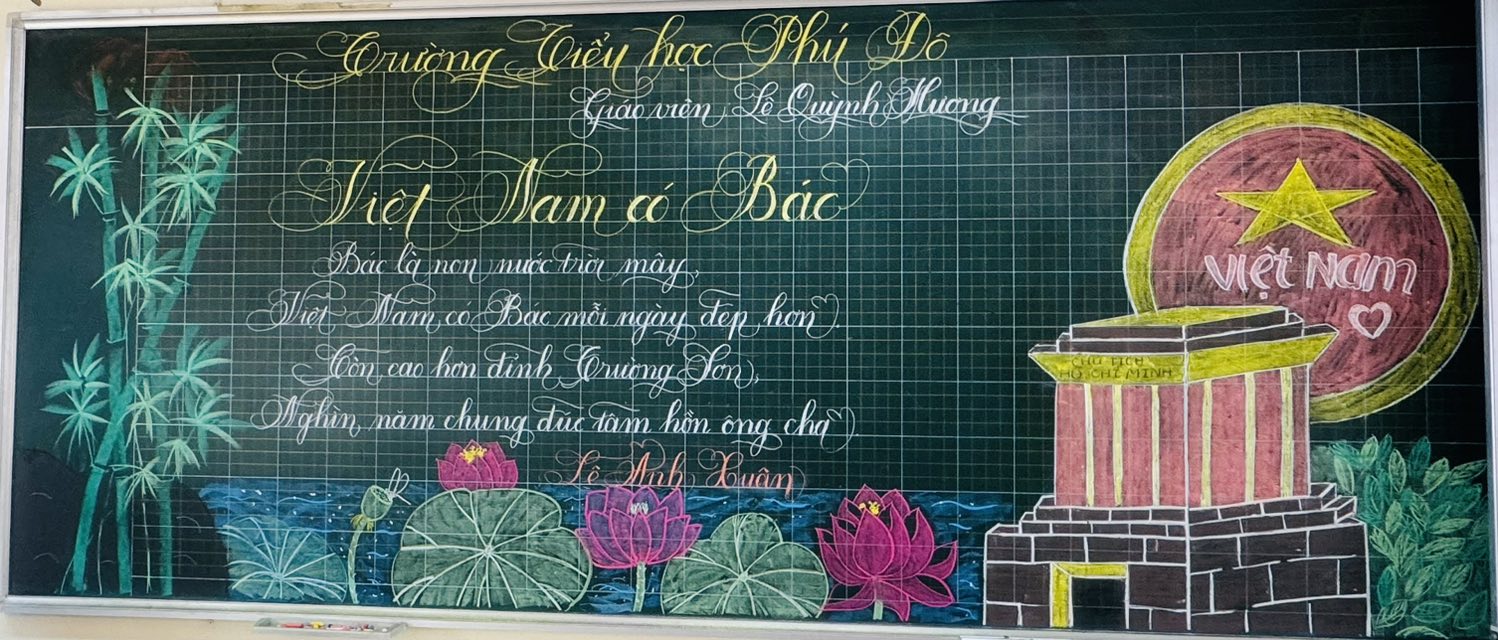 Trường Tiểu học Phú Đô
Giáo viên Lê Quỳnh Hương
Việt Nam có Bác
Bác là non nước trời mây,
Việt Nam có Bác mỗi ngày đẹp hơn.
Còn cao hơn đỉnh Trường Sơn,
Nghìn năm chung đúc tâm hồn ông cha.
Lê Anh Xuân
Việt Nam
CHỦ TỊCH
HỒ CHÍ MINH